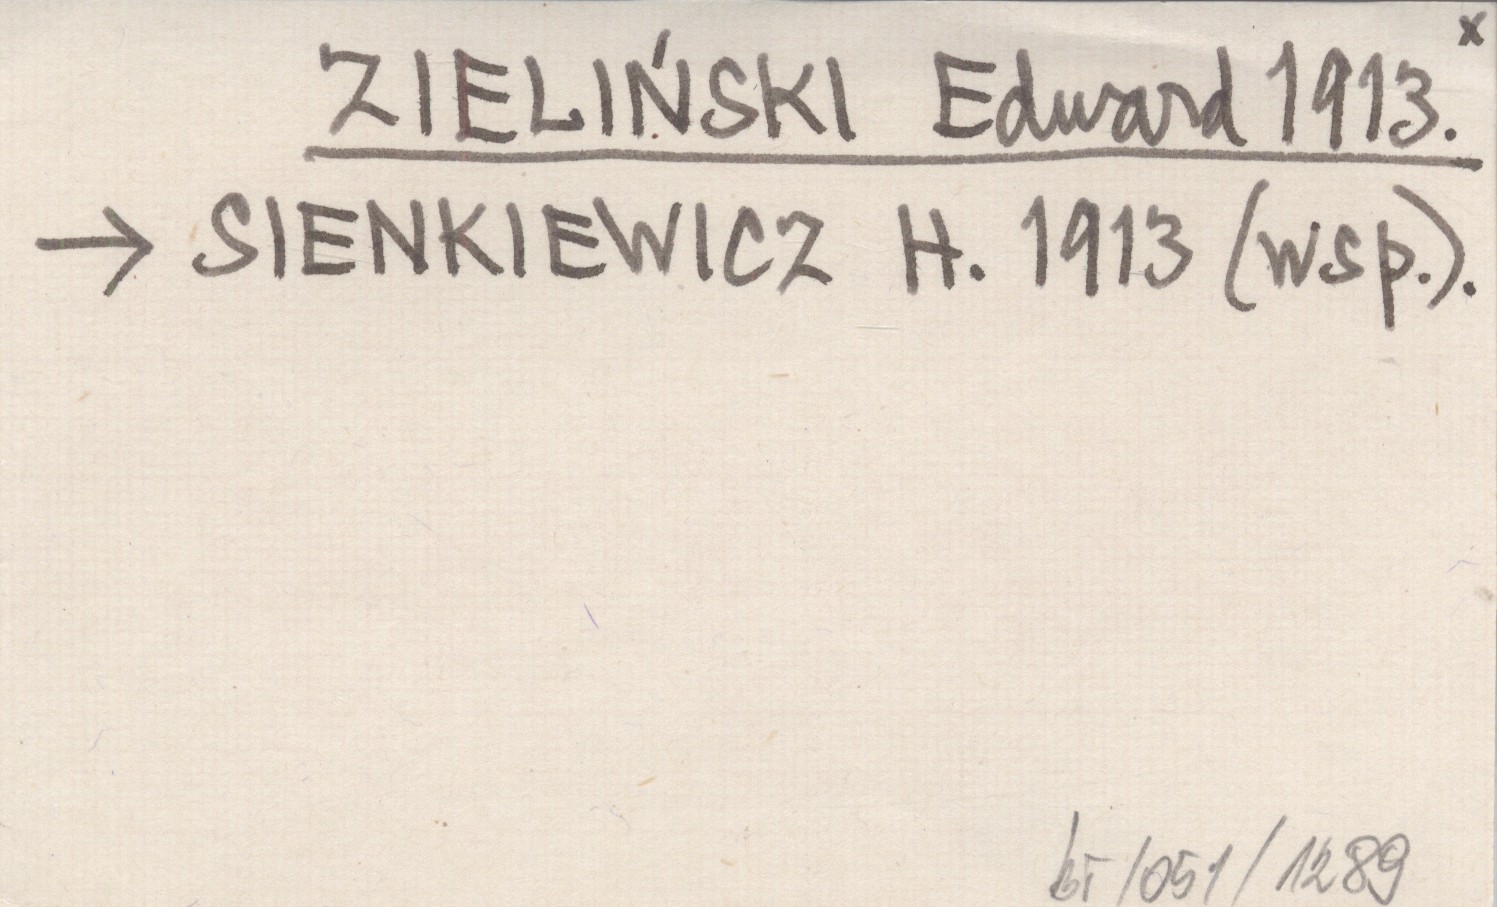 x
ZIELIŃSKI Edward 1913.
→ SIENKIEWICZ H. 1913 (wsp.).
/051/1289